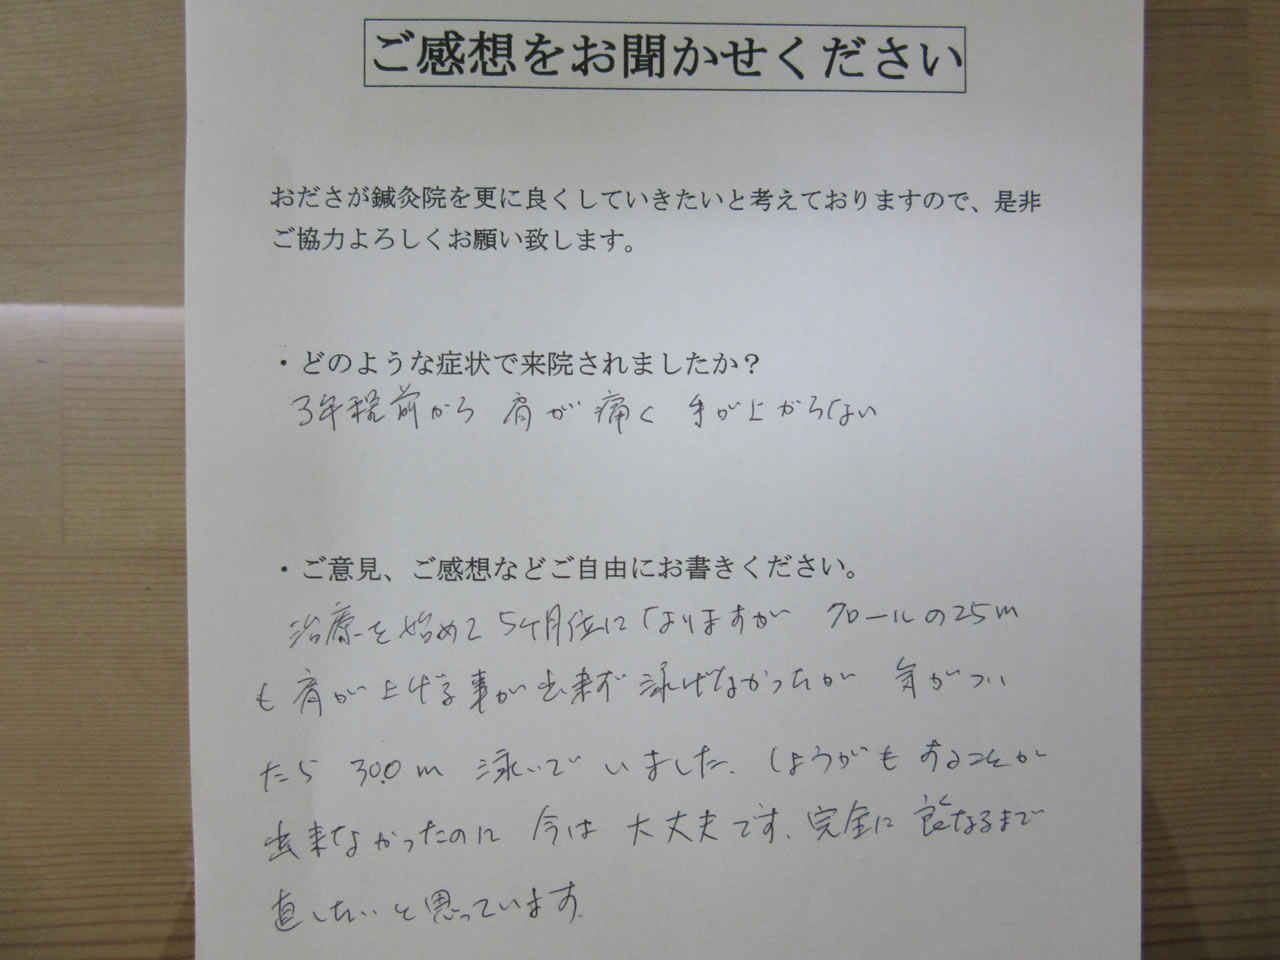 ご感想をお聞かせください
おださが鍼灸院を更に良くしていきたいと考えておりますので、是非
ご協力よろしくお願い致します。
・どのような症状で来院されましたか？
3年程前から 肩が痛く 手が上がらない
・ご意見、ご感想などご自由にお書きください。
治療を始めて 5ヶ月位になりますが クロールの25m
も肩が上げる事が出来ず 泳げなかったが 気がつい
たら 300m 泳いでいました. しょうがもすることが
出来なかったのに 今は 大丈夫です. 完全に良くなるまで
直したいと思っています.